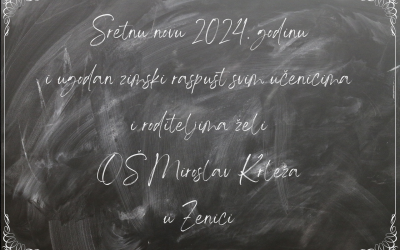 Sretnu novu 2024. godinu
i ugodan zimski raspust svim učenicima
i roditeljima želi
OŠ Miroslav Krleža
u Zenici